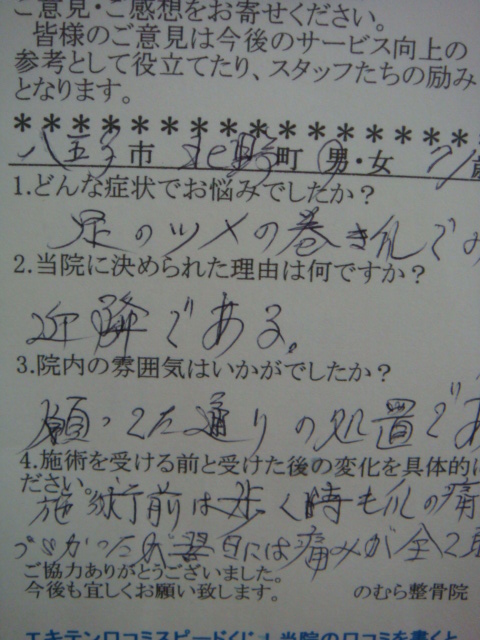 ご意見・ご感想をお寄せください。
皆様のご意見は今後のサービス向上の
参考として役立てたり、スタッフたちの励み
となります。
＊＊＊＊＊＊＊＊＊＊＊＊＊＊＊＊＊＊＊
八王子市 北野町 男・女 71歳
1.どんな症状でお悩みでしたか？
足のツメの巻き爪で
2.当院に決められた理由は何ですか？
近隣である。
3.院内の雰囲気はいかがでしたか？
願った通りの処置で
4.施術を受ける前と受けた後の変化を具体的に
ださい。
施術前は歩く時も爪の痛
翌日には痛みが全く
ご協力ありがとうございました。
今後も宜しくお願い致します。 のむら整骨院
エキテン口コミスピードくじ 当院の口コミを書くと